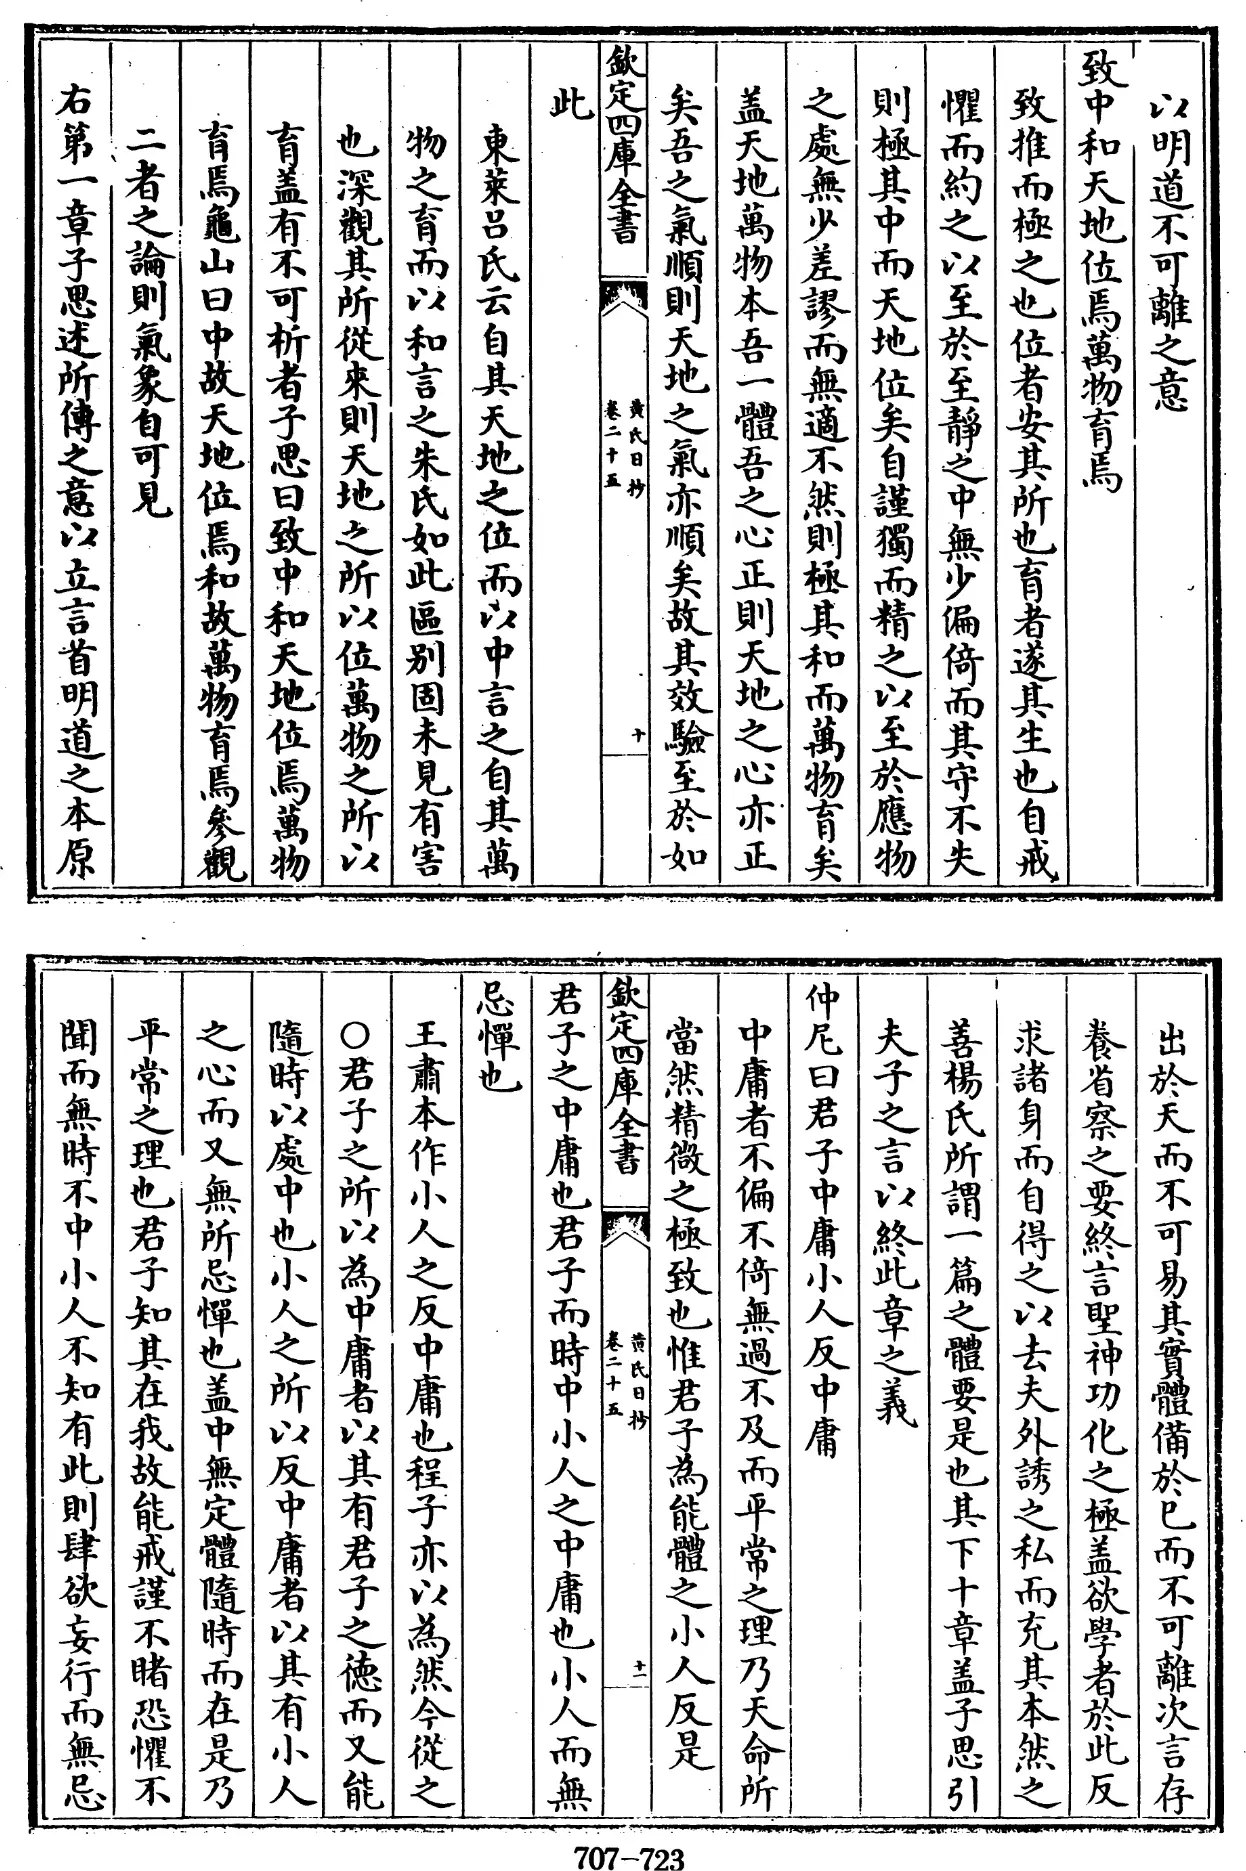 以明道不可離之意
致中和天地位焉萬物育焉
致推而極之也位者安其所也育者遂其生也自戒
懼而約之以至於至靜之中無少偏倚而其守不失
則極其中而天地位矣自謹獨而精之以至於應物
之處無少差謬而無適不然則極其和而萬物育矣
盖天地萬物本吾一體吾之心正則天地之心亦正
矣吾之氣順則天地之氣亦順矣故其效驗至於如
欽定四庫全書
黄氏日抄
卷二十五
十
此
東萊吕氏云自其天地之位而以中言之自其萬
物之育而以和言之朱氏如此區别固未見有害
也深觀其所從來則天地之所以位萬物之所以
育盖有不可析者子思曰致中和天地位焉萬物
育焉龜山曰中故天地位焉和故萬物育焉參觀
二者之論則氣象自可見
右第一章子思述所傳之意以立言首明道之本原
出於天而不可易其實體備於已而不可離次言存
養省察之要終言聖神功化之極盖欲學者於此反
求諸身而自得之以去夫外誘之私而充其本然之
善楊氏所謂一篇之體要是也其下十章盖子思引
夫子之言以終此章之義
仲尼曰君子中庸小人反中庸
中庸者不偏不倚無過不及而平常之理乃天命所
當然精微之極致也惟君子為能體之小人反是
欽定四庫全書
黄氏日抄
卷二十五
十一
君子之中庸也君子而時中小人之中庸也小人而無
忌憚也
王肅本作小人之反中庸也程子亦以為然今從之
○君子之所以為中庸者以其有君子之德而又能
隨時以處中也小人之所以反中庸者以其有小人
之心而又無所忌憚也盖中無定體隨時而在是乃
平常之理也君子知其在我故能戒謹不睹恐懼不
聞而無時不中小人不知有此則肆欲妄行而無忌
707-723